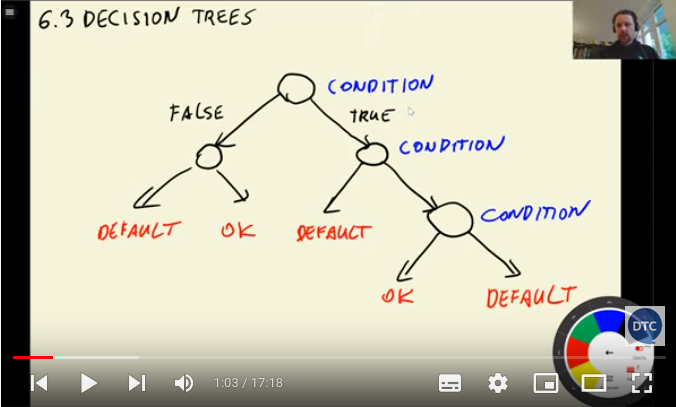 6.3 DECISION TREES
CONDITION
FALSE
TRUE
CONDITION
CONDITION
DEFAULT OK DEFAULT
OK DEFAULT
DTC
1:03 / 17:18